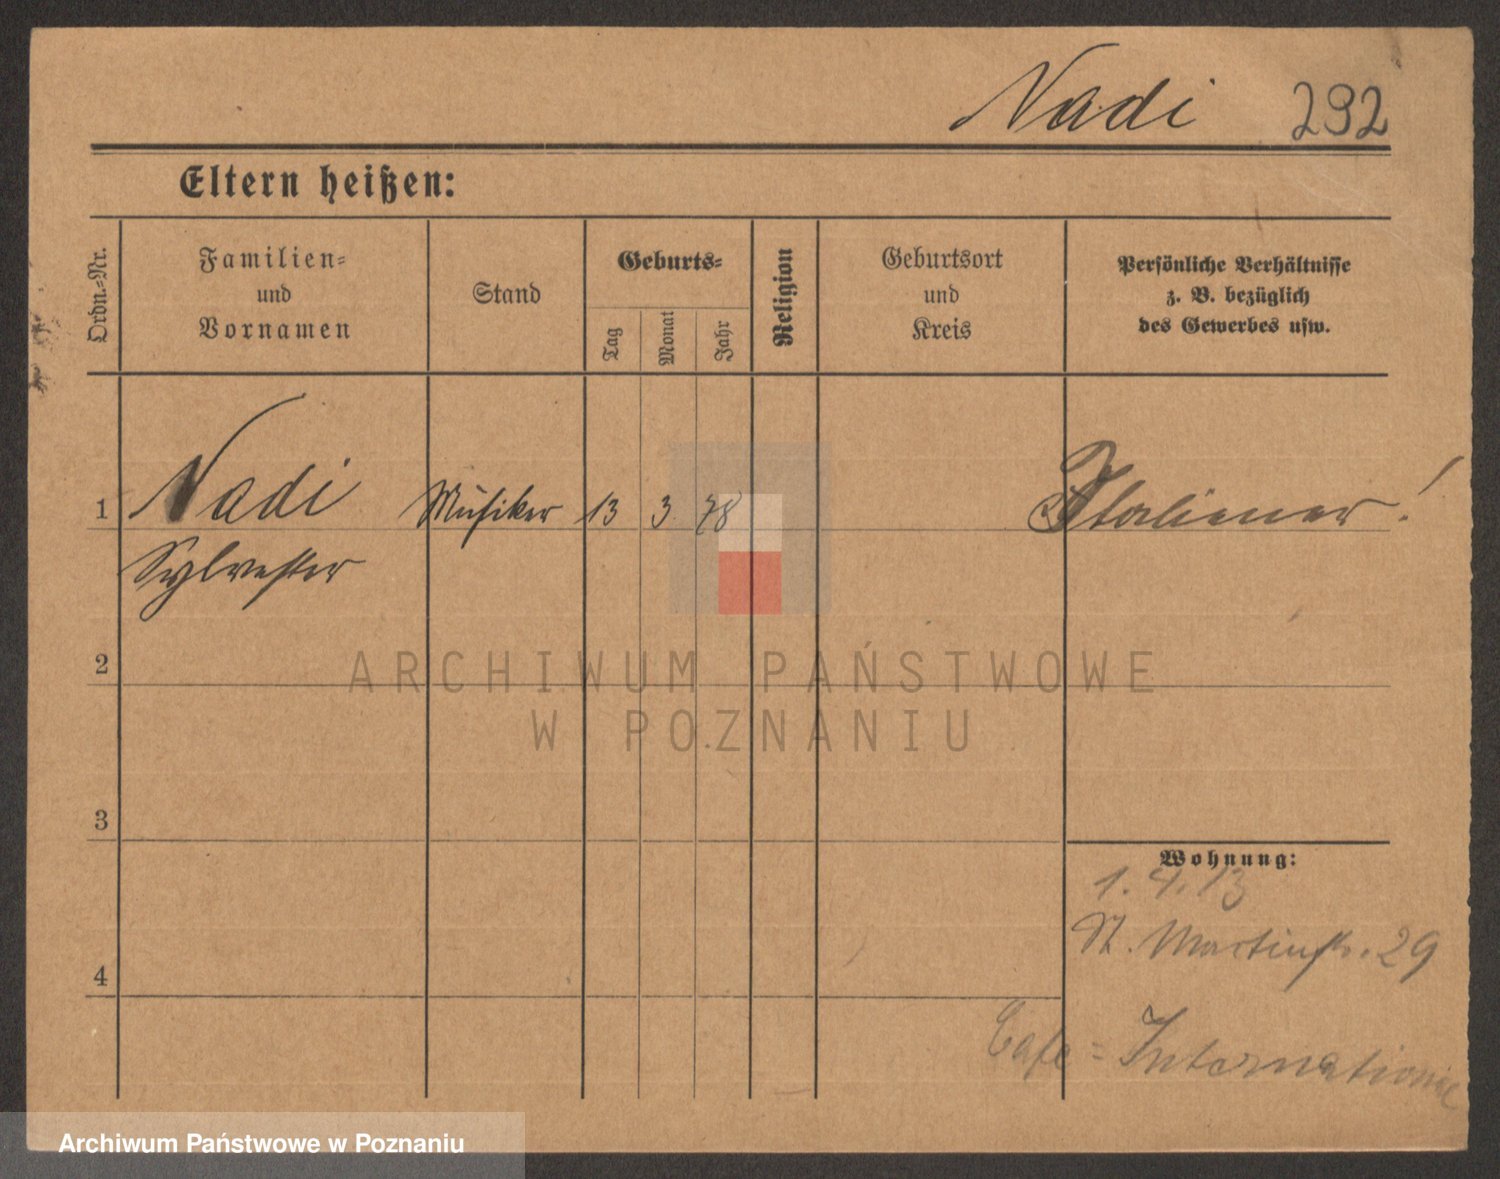 Nadi 292
Eltern heißen:
Ordn.-Nr.
Familien-
und
Vornamen
Stand
Geburts-
Tag
Monat
Jahr
Religion
Geburtsort
und
Kreis
Persönliche Verhältnisse
z. B. bezüglich
des Gewerbes usw.
1 Nadi Musiker 13 3. 78 Italiener!
Sylvester
2
3
4
Wohnung:
1. 4. 13
St. Martinstr. 29
Cafe = International
ARCHIWUM PAŃSTWOWE
W POZNANIU
Archiwum Państwowe w Poznaniu